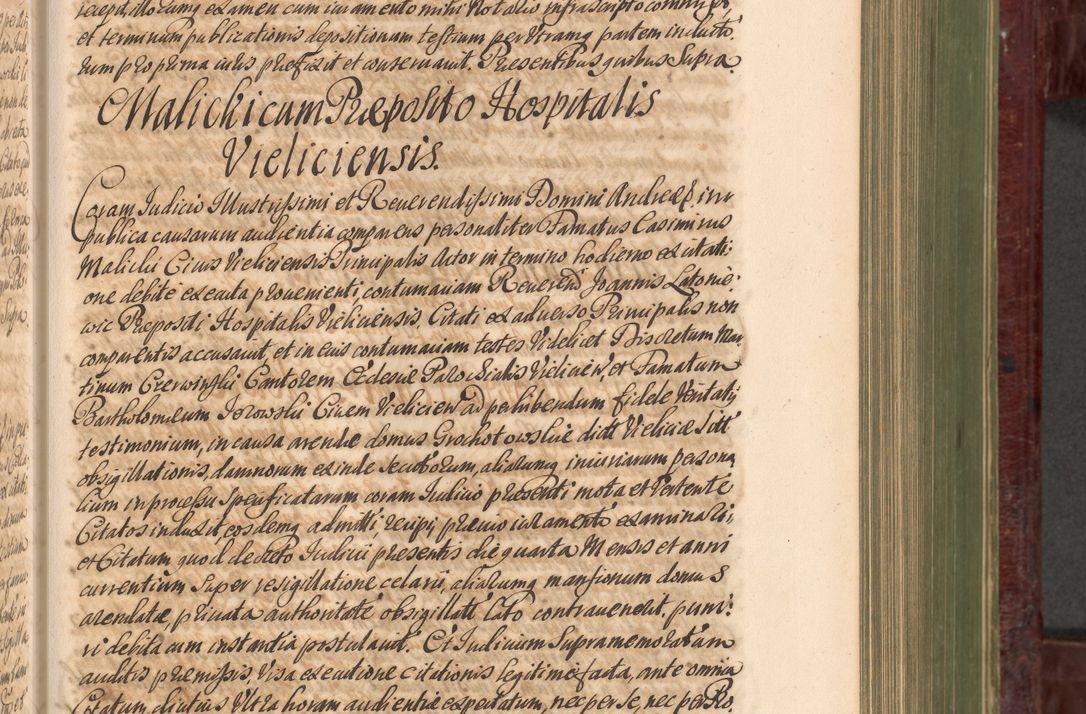 recepit, illorumq examen cum iuramento mihi Notario infrascripto commisit,
et terminum publicationis depositionum testium per Vtramq partem inducto
rum pro prima iuris præfixit et conseruauit. Præsentibus quibus Supra.
Malickicum Præposito Hospitalis
Vieliciensis.
Coram Iudicio Illustrissimi et Reuerendissimi Domini Andreæ in
publica causarum audientia comparens personaliter Famatus Casimirus
Malicki Ciuis Vieliciensis Principalis Actor in termino hodierno ex citati:
one debite executa proueniente, contumaciam Reuerend Joannis Latonie:
wic Præpositi Hospitalis Vieliciensis, Citati ex aduerso Principalis non
comparentis accusauit, et in eius contumaciam testes Videlicet Discretum Mar
tinum Czerwinski Cantorem Ecclesiæ Parochialis Vielicien, et Famatum
Bartholomæum Jorowski Ciuem Vielicien ad perhibendum fidele Veritati
testimonium, in causa arendæ domus Grochotowskie dict Vieliciæ sitt
obsigillationis, damnorum exinde secutorum, aliarumq iniuriarum persona
lium in processu specificatarum coram Iudicio præsenti mota et Vertente
Citatos induxit, eosdemq admitti recipi, præuio iuramento examinari,
et Citatum quod decreto Iudicii præsentis die quarta Mensis et anni
currentium super resigillatione celarii, aliarumq mansionum domus
arendatæ, priuata authoritate obsigillatt lato contrauenerit, puni:
ri debita cum instantia postulauit. Et Iudicium Supramemoratum
auditis præmissis, Visa executione citationis legitime facta, ante omnia
Citatum diutius Vltra horam audientiæ expectatum, nec per se, nec per Pro.